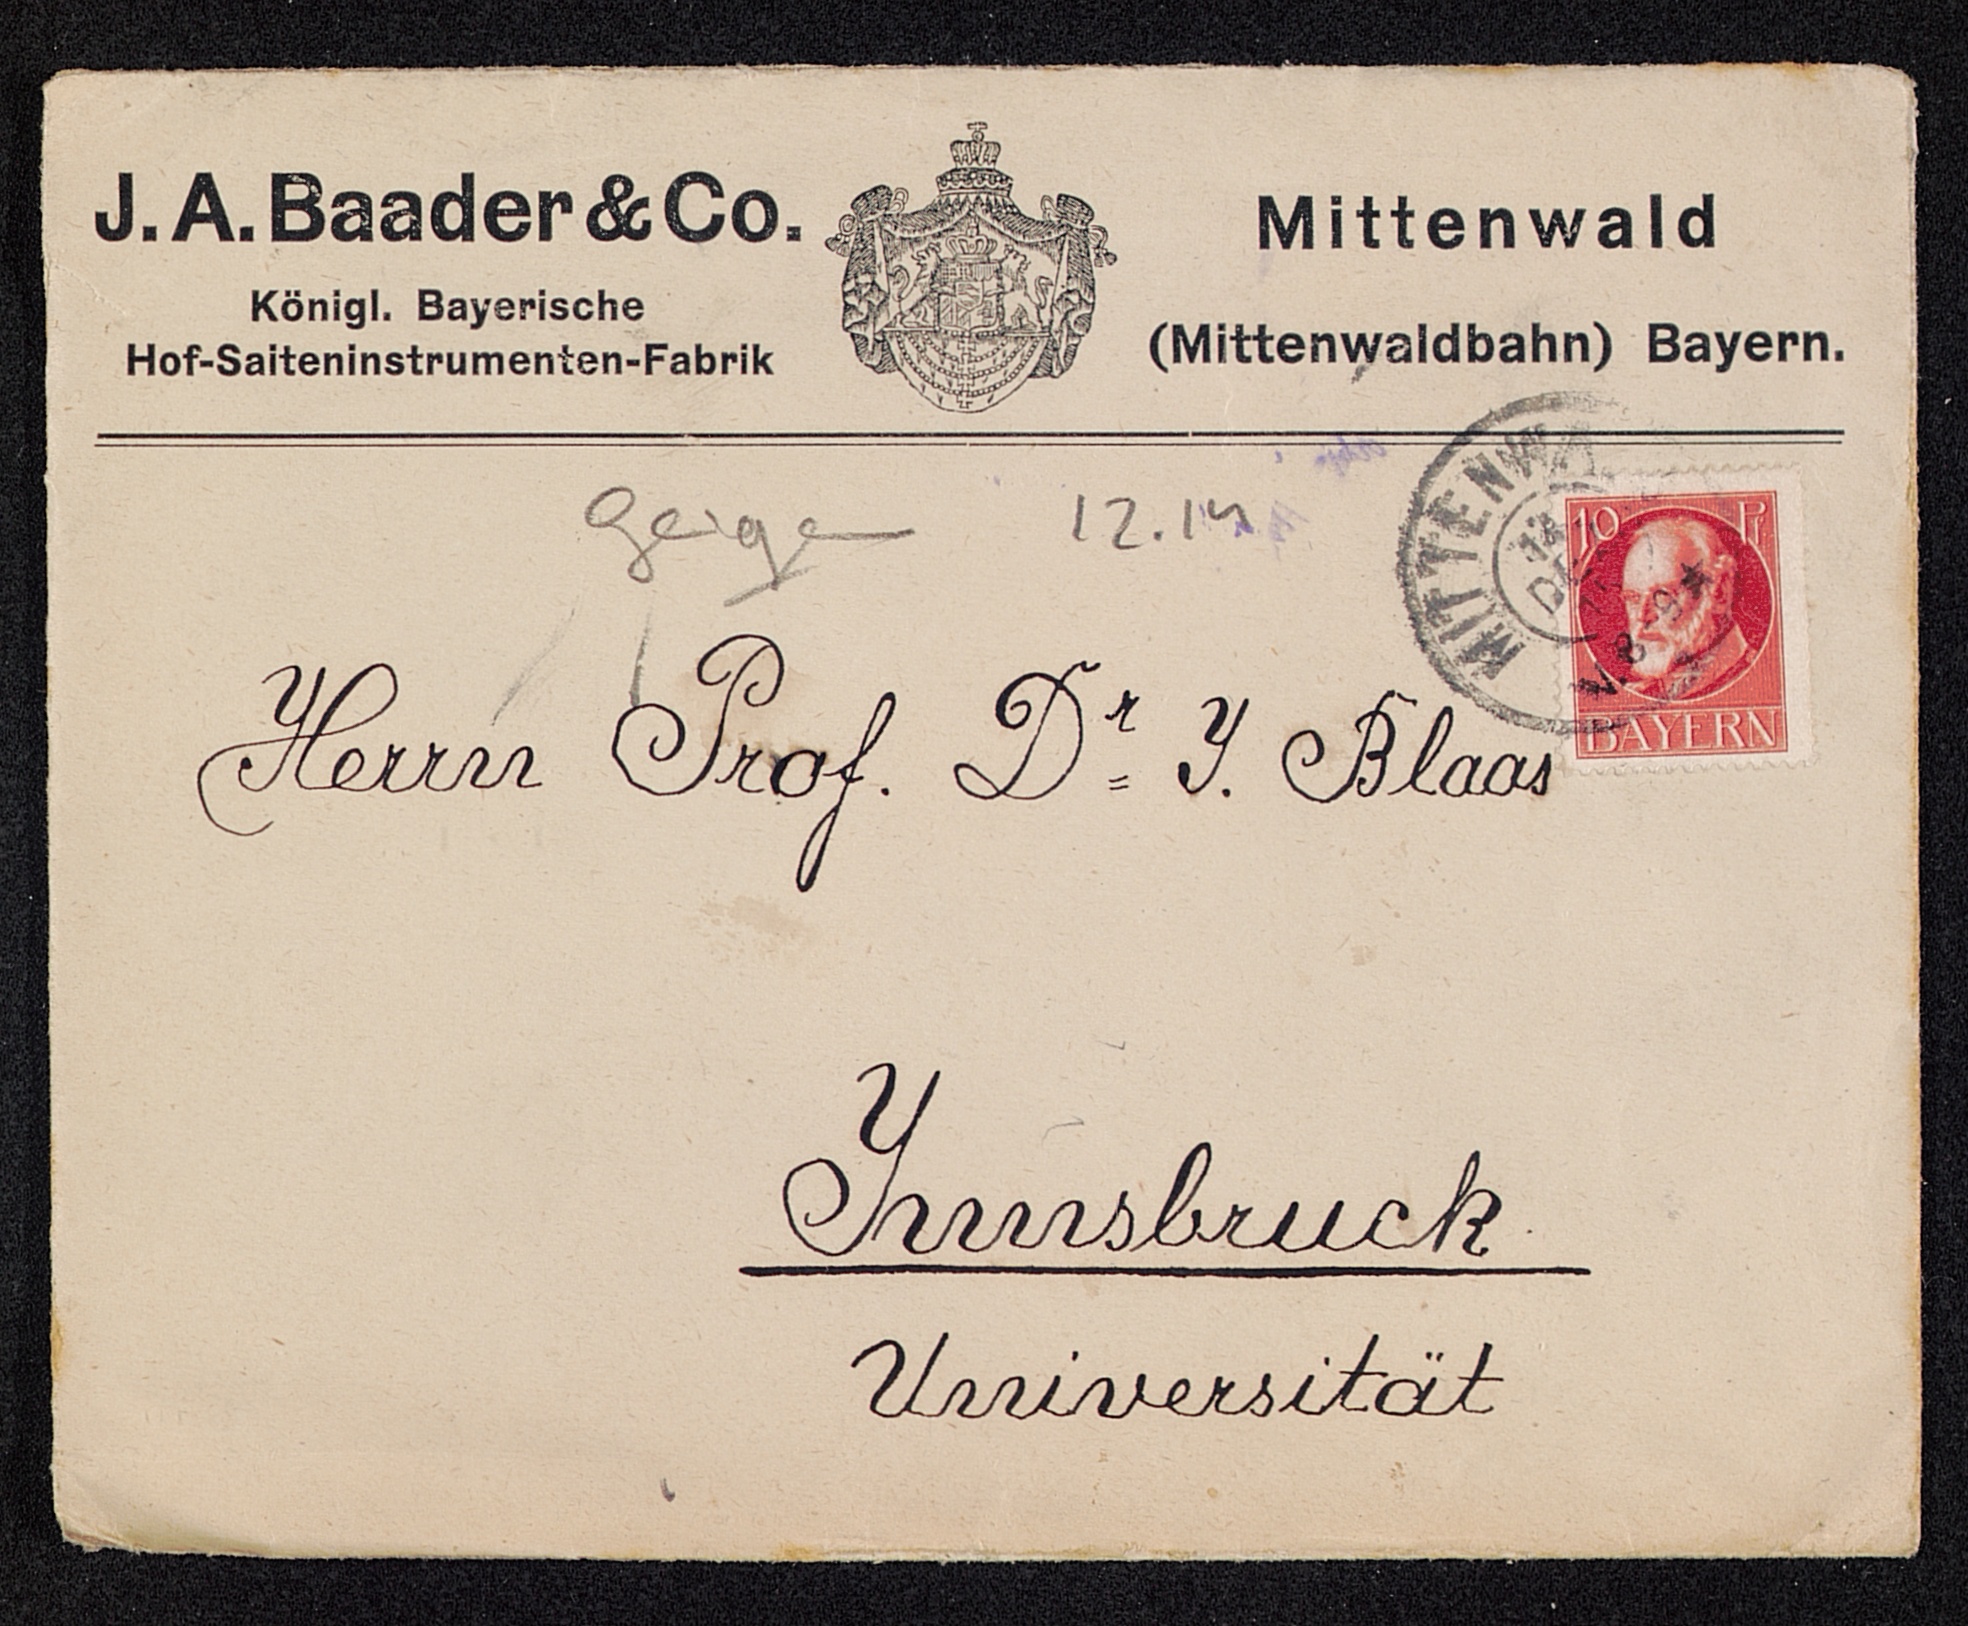 J. A. Baader & Co.
Königl. Bayerische
Hof-Saiteninstrumenten-Fabrik
Mittenwald
(Mittenwaldbahn) Bayern.
Geige 12.14
MITTENWA
DE
V. 8-9
10 Pf
BAYERN
Herrn Prof. Dr. J. Blaas
Innsbruck
Universität